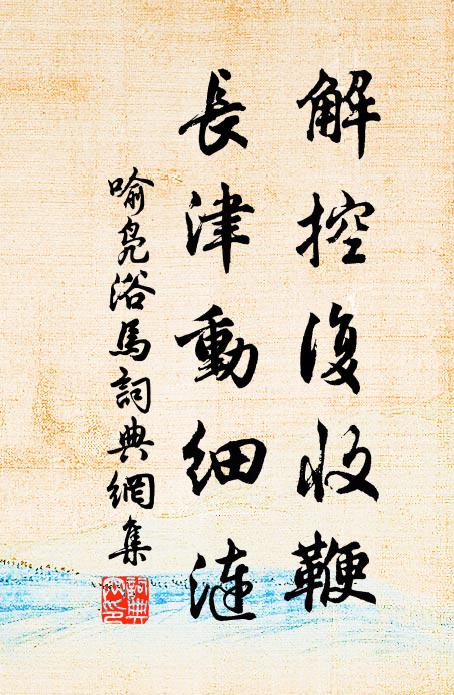 解控復收鞭
長津動細漣
喻鳧浴馬詞典網集